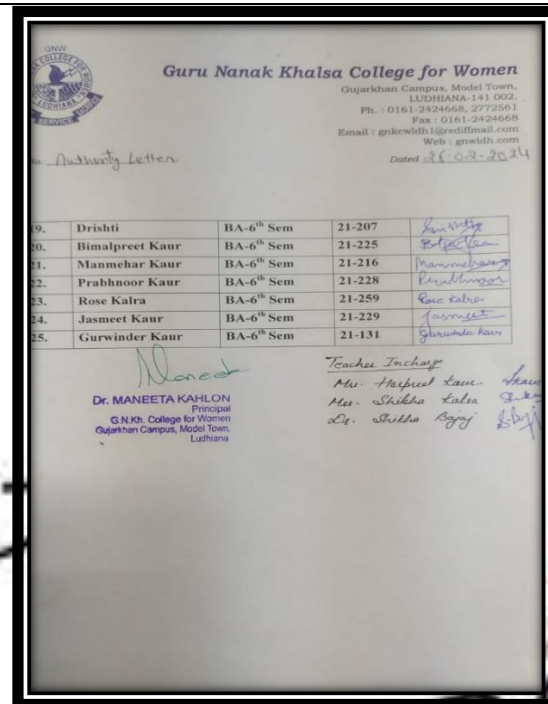 GNW
COLLEGE FOR WOMEN
LUDHIANA
SERVICE
Guru Nanak Khalsa College for Women
Gujarkhan Campus, Model Town,
LUDHIANA-141 002.
Ph. : 0161-2424668, 2772561
Fax : 0161-2424668
Email : gnkcwldh1@rediffmail.com
Web : gnwldh.com
Authority Letter
Dated 26-02-2024
19. Drishti BA-6th Sem 21-207 Drishti
20. Bimalpreet Kaur BA-6th Sem 21-225
21. Manmehar Kaur BA-6th Sem 21-216 Manmehar
22. Prabhnoor Kaur BA-6th Sem 21-228 Prabhnoor
23. Rose Kalra BA-6th Sem 21-259 Rose Kalra
24. Jasmeet Kaur BA-6th Sem 21-229 Jasmeet
25. Gurwinder Kaur BA-6th Sem 21-131 Gurwinder Kaur
Maneet
Dr. MANEETA KAHLON
Principal
G.N.Kh. College for Women
Gujarkhan Campus, Model Town,
Ludhiana
Teacher Incharge
Mrs. Harpreet Kaur
Mrs. Shikha Kalra
Dr. Shikha Bajaj